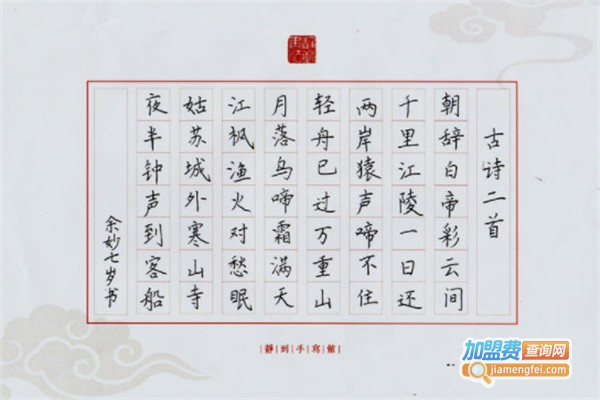 古诗二首
朝辞白帝彩云间
千里江陵一日还
两岸猿声啼不住
轻舟已过万重山
月落乌啼霜满天
江枫渔火对愁眠
姑苏城外寒山寺
夜半钟声到客船
余妙七岁书
|静|到|手|寫|館|
加盟费查询网
jiamengfei.com